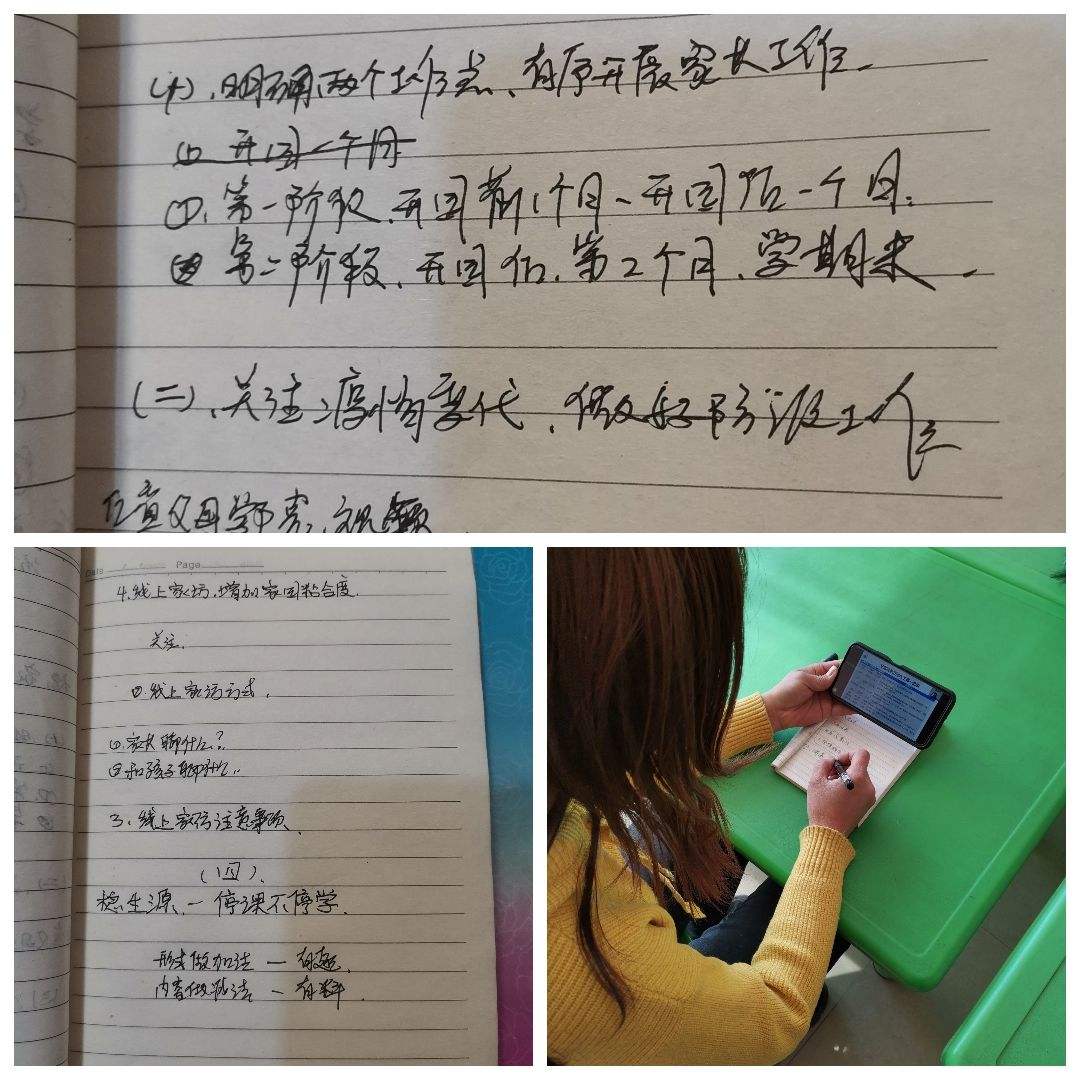 (十)、明确两个工作点、有序开展家长工作.
① 开园一个月
①、第一阶段、开园前1个月、开园后一个月.
② 第二阶段、开园后、第2个月、学期末.
(二)、关注疫情变化、做好防疫工作
Date Page
4.线上家访,增加家园粘合度.
关注.
②.线上家访方式.
①.家长聊什么?
②和孩子聊什么.
3、线上家访注意事项
(四).
稳生源、一停课不停学.
形式做加法 — 有趣.
内容做减法 — 有料.